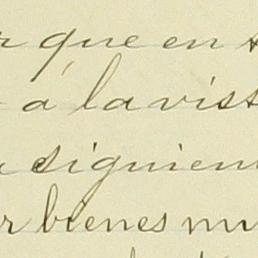 r que en
á la vist
siguien
r bienes mu